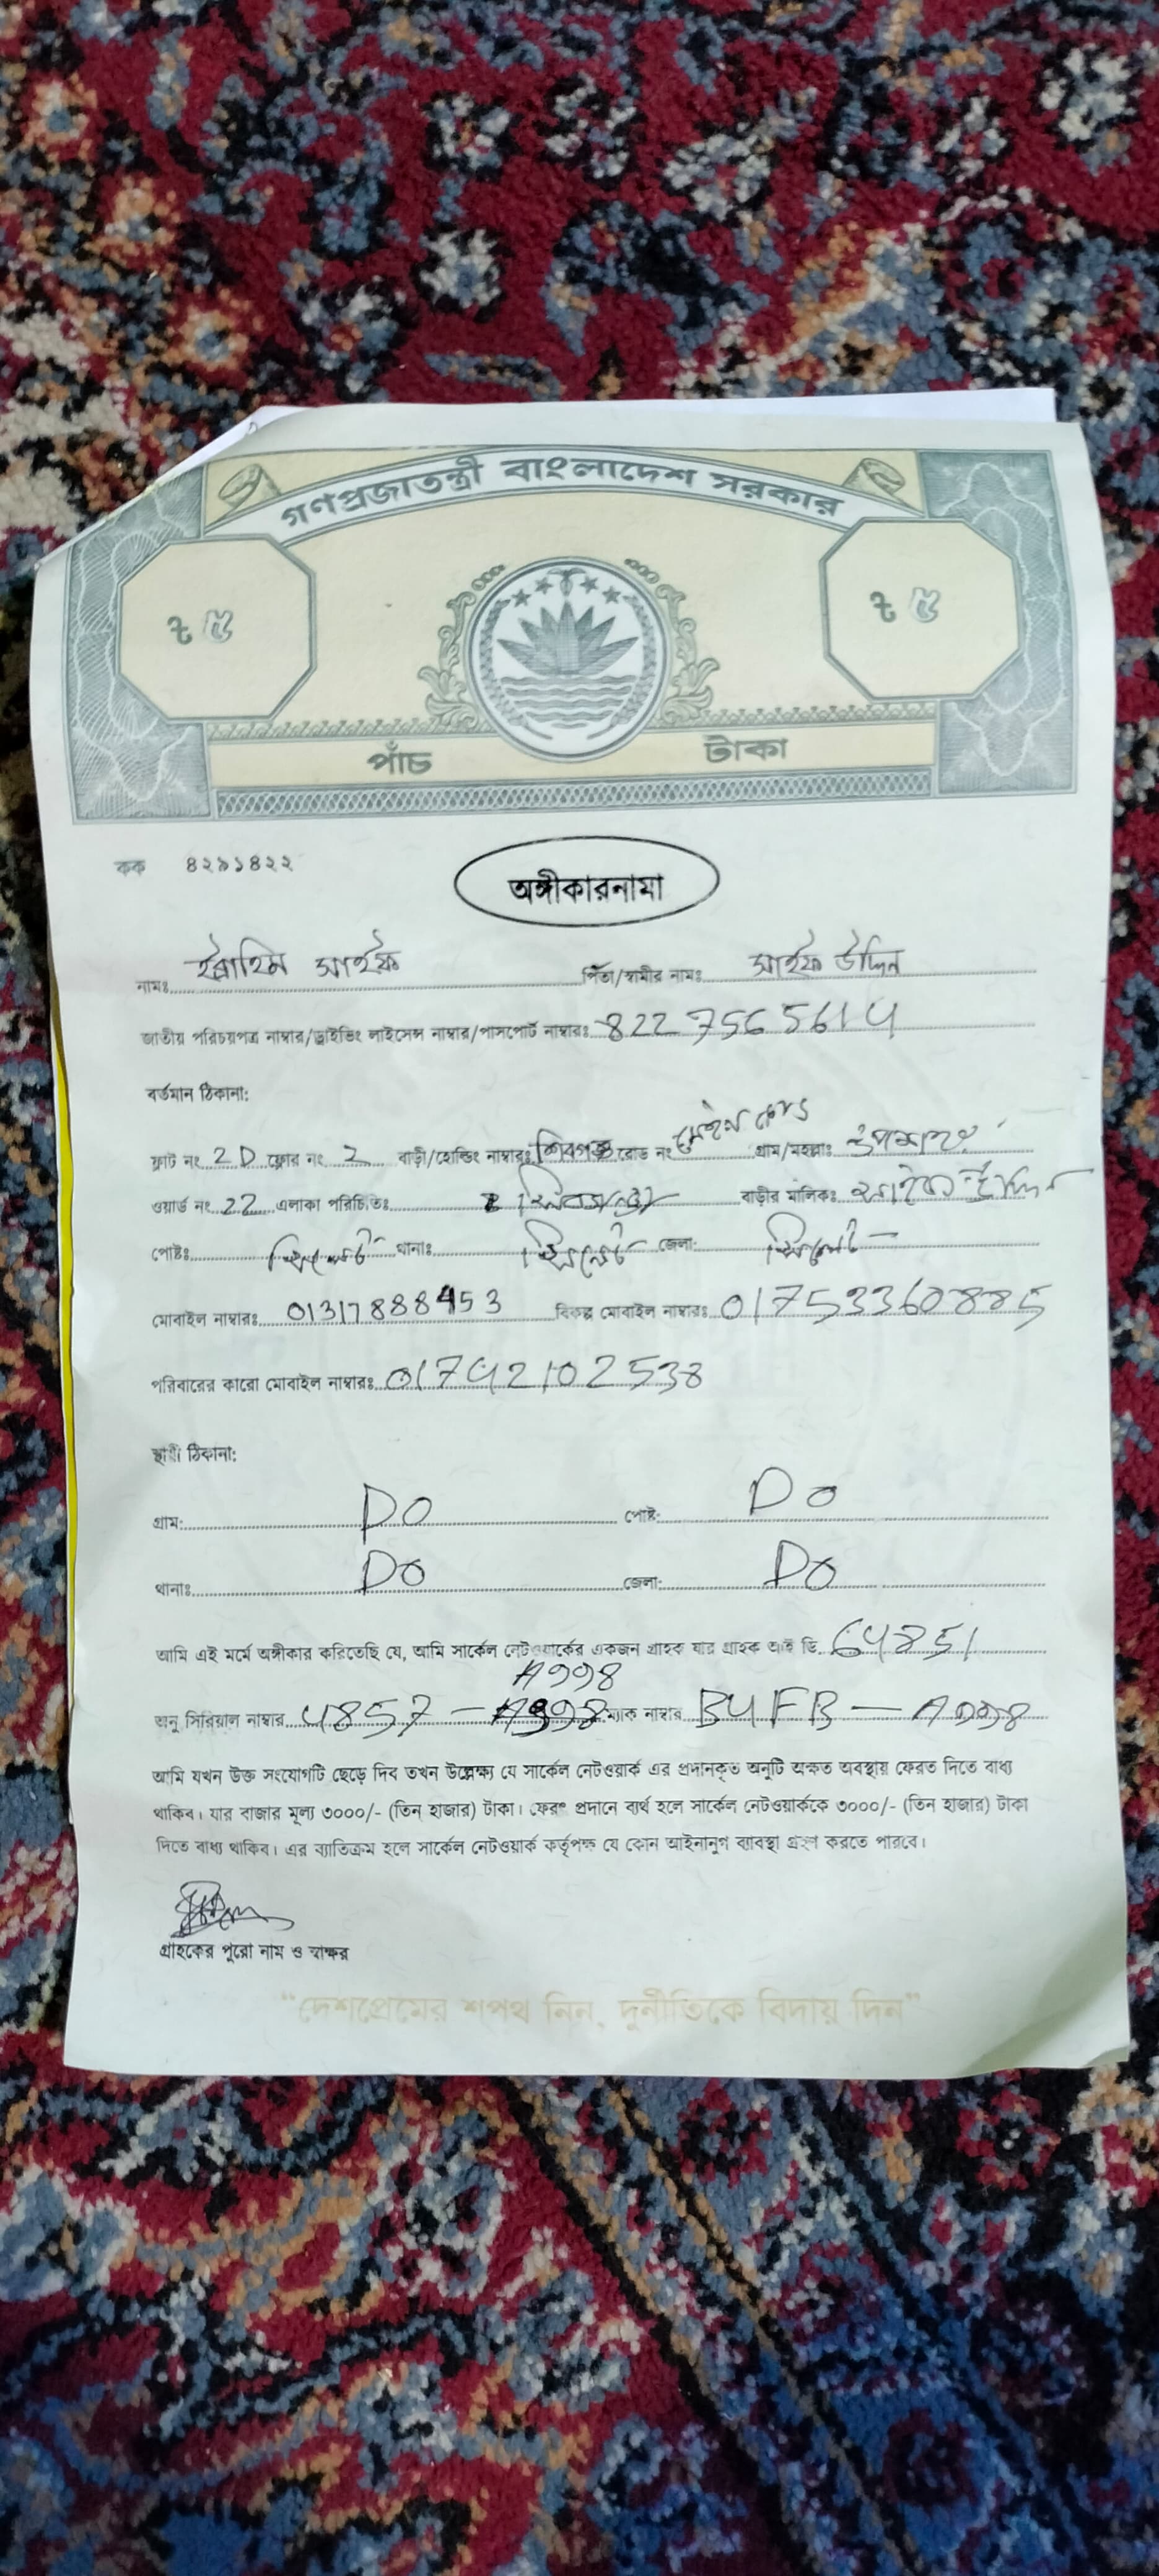 গণপ্রজাতন্ত্রী বাংলাদেশ সরকার
৳ ৫ ৳ ৫
পাঁচ টাকা
কক ৪২৯১৪২২
অঙ্গীকারনামা
নামঃ ইব্রাহিম সাইফ পিতা/স্বামীর নামঃ সাইফ উদ্দিন
জাতীয় পরিচয়পত্র নাম্বার/ড্রাইভিং লাইসেন্স নাম্বার/পাসপোর্ট নাম্বারঃ 8227565614
বর্তমান ঠিকানা:
ফ্লাট নং 2D ফ্লোর নং 2 বাড়ী/হোল্ডিং নাম্বারঃ শিবগঞ্জ রোড নং মেইন রোড গ্রাম/মহল্লাঃ
ওয়ার্ড নং 22 এলাকা পরিচিতঃ বাড়ীর মালিকঃ সাইফ উদ্দিন
পোষ্টঃ সিলেট থানাঃ সিলেট জেলা: সিলেট
মোবাইল নাম্বারঃ 01317888453 বিকল্প মোবাইল নাম্বারঃ 01753360885
পরিবারের কারো মোবাইল নাম্বারঃ 01742102538
স্থায়ী ঠিকানা:
গ্রাম: DO পোষ্ট: DO
থানাঃ DO জেলা: DO
আমি এই মর্মে অঙ্গীকার করিতেছি যে, আমি সার্কেল নেটওয়ার্কের একজন গ্রাহক যার গ্রাহক আই ডি 64851
A998
অনু সিরিয়াল নাম্বার 4857 - ম্যাক নাম্বার B4FB - A998
আমি যখন উক্ত সংযোগটি ছেড়ে দিব তখন উল্লেক্ষ্য যে সার্কেল নেটওয়ার্ক এর প্রদানকৃত অনুটি অক্ষত অবস্থায় ফেরত দিতে বাধ্য
থাকিব। যার বাজার মূল্য ৩০০০/- (তিন হাজার) টাকা। ফেরৎ প্রদানে ব্যর্থ হলে সার্কেল নেটওয়ার্ককে ৩০০০/- (তিন হাজার) টাকা
দিতে বাধ্য থাকিব। এর ব্যাতিক্রম হলে সার্কেল নেটওয়ার্ক কর্তৃপক্ষ যে কোন আইনানুগ ব্যাবস্থা গ্রহণ করতে পারবে।
গ্রাহকের পুরো নাম ও স্বাক্ষর
"দেশপ্রেমের শপথ নিন, দুর্নীতিকে বিদায় দিন"